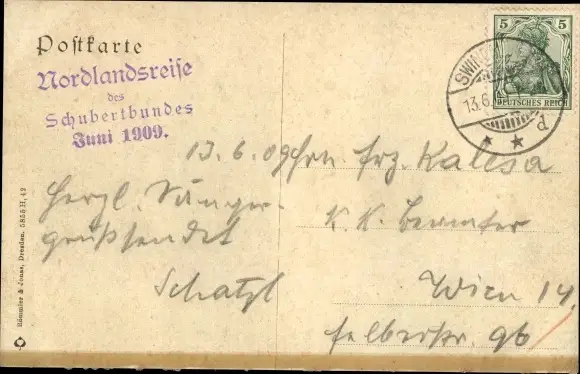 Postkarte
Nordlandsreise
des
Schubertbundes
Juni 1909.
5 5
DEUTSCHES REICH
SWINE
13.6.
d
13.6.09
Herzl. Sänger-
grüße sendet
Schatzl
Hrn Frz. Kalesa
K. K. Beamter
Wien 14.
Felberstr. 96
Römmler & Jonas, Dresden. 5855 H, 42